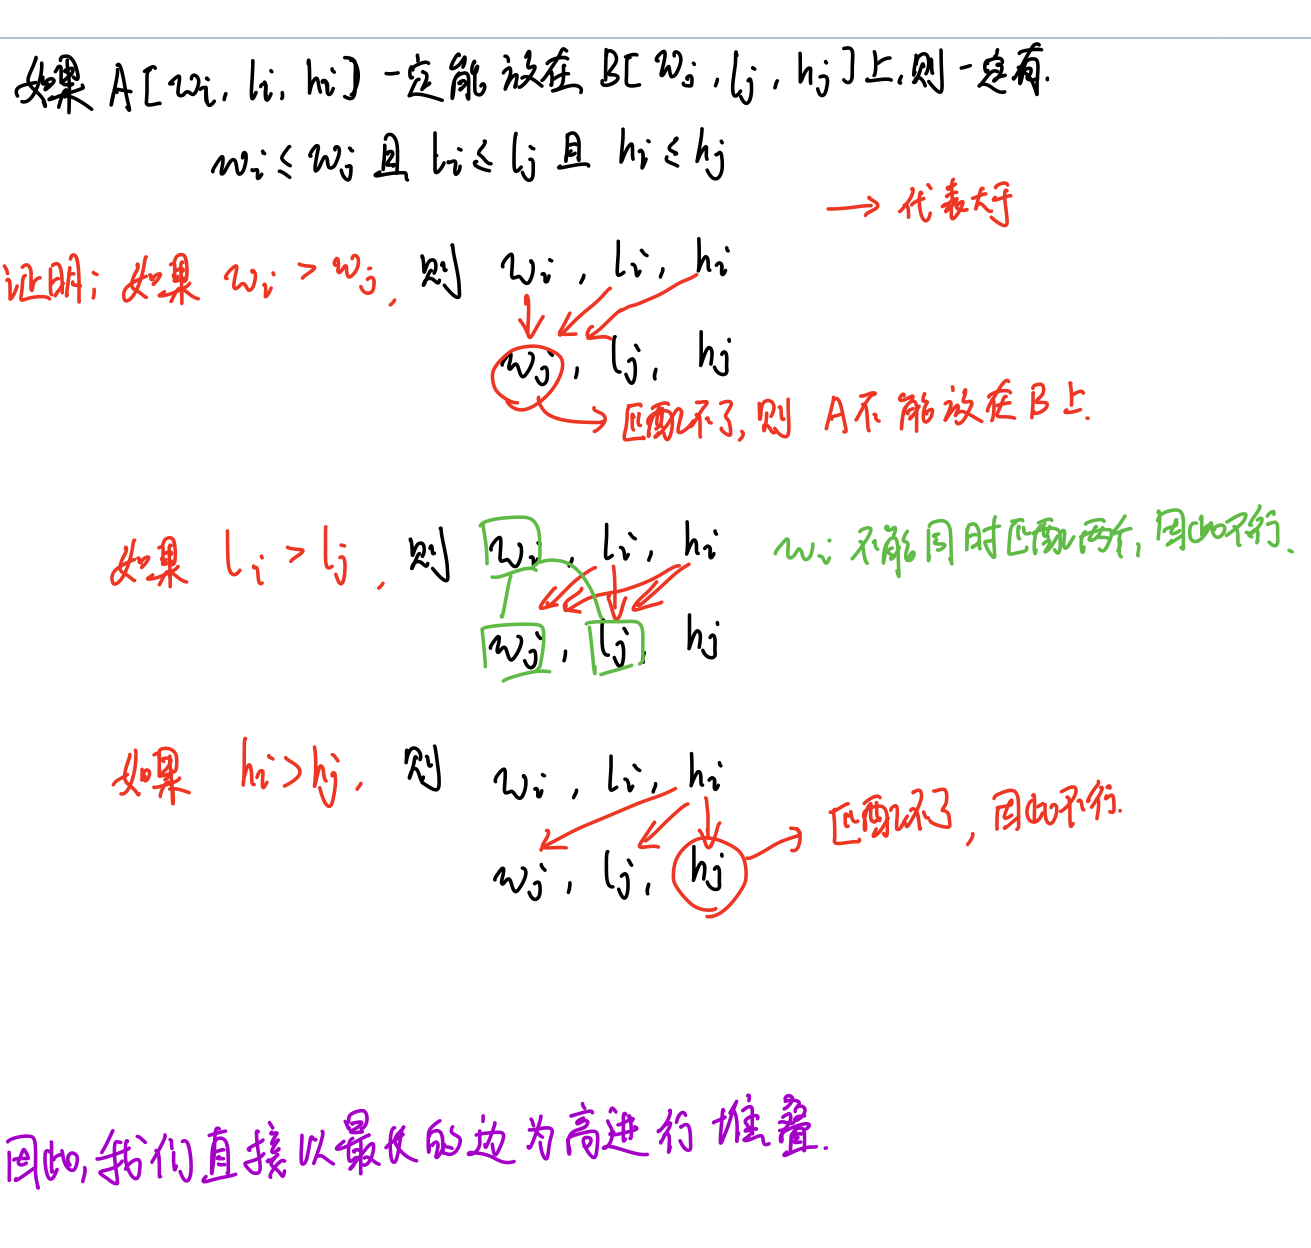 如果 A[wi, li, hi] 一定能放在 B[wj, lj, hj]上,则一定有.
wi ≤ wj 且 li ≤ lj 且 hi ≤ hj
→ 代表大于
证明: 如果 wi > wj, 则 wi, li, hi
wj, lj, hj
匹配不了,则 A不能放在B上.
如果 li > lj, 则 wi, li, hi wi 不能同时匹配两个,因此不行.
wj, lj, hj
如果 hi > hj, 则 wi, li, hi
匹配不了,因此不行.
wj, lj, hj
因此,我们直接以最长的边为高进行堆叠.